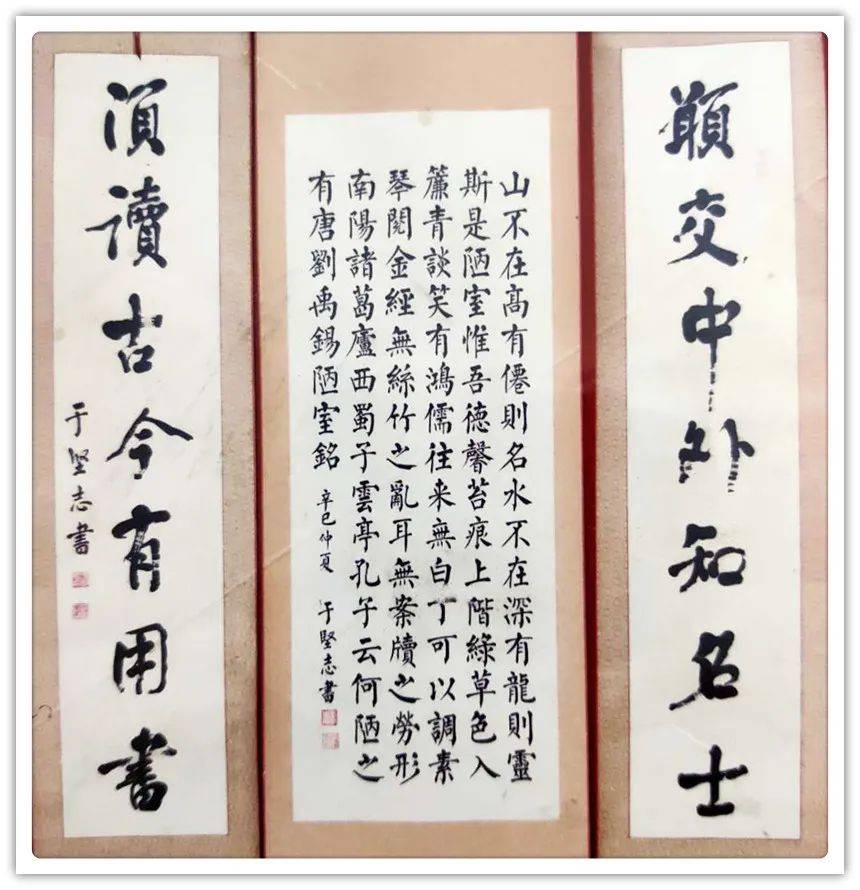 願交中外知名士
山不在高有僊則名水不在深有龍則靈
斯是陋室惟吾德馨苔痕上階綠草色入
簾青談笑有鴻儒往来無白丁可以調素
琴閱金經無絲竹之亂耳無案牘之勞形
南陽諸葛廬西蜀子雲亭孔子云何陋之
有唐劉禹錫陋室銘
辛巳仲夏 于堅志書
須讀古今有用書
于堅志書